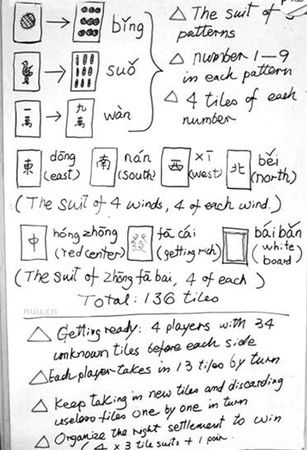 bǐng
suǒ
一萬 九萬 wàn
△ The suit of patterns
△ number 1-9 in each pattern
△ 4 tiles of each number
東 dōng (east) 南 nán (south) 西 xī (west) 北 běi (north)
(The suit of 4 winds, 4 of each wind.)
中 hóng zhōng (red center) 發 fā cái (getting rich) bái bǎn (white board)
(The suit of zhōng fā bai, 4 of each)
Total: 136 tiles
nuu.cn
△ Getting ready: 4 players with 34
unknown tiles before each side
△ Each player takes in 13 tiles by turn
△ Keep taking in new tiles and discarding
useless tiles one by one in turn
△ Organize the right settlement to win
(4 × 3 tile suits + 1 pair